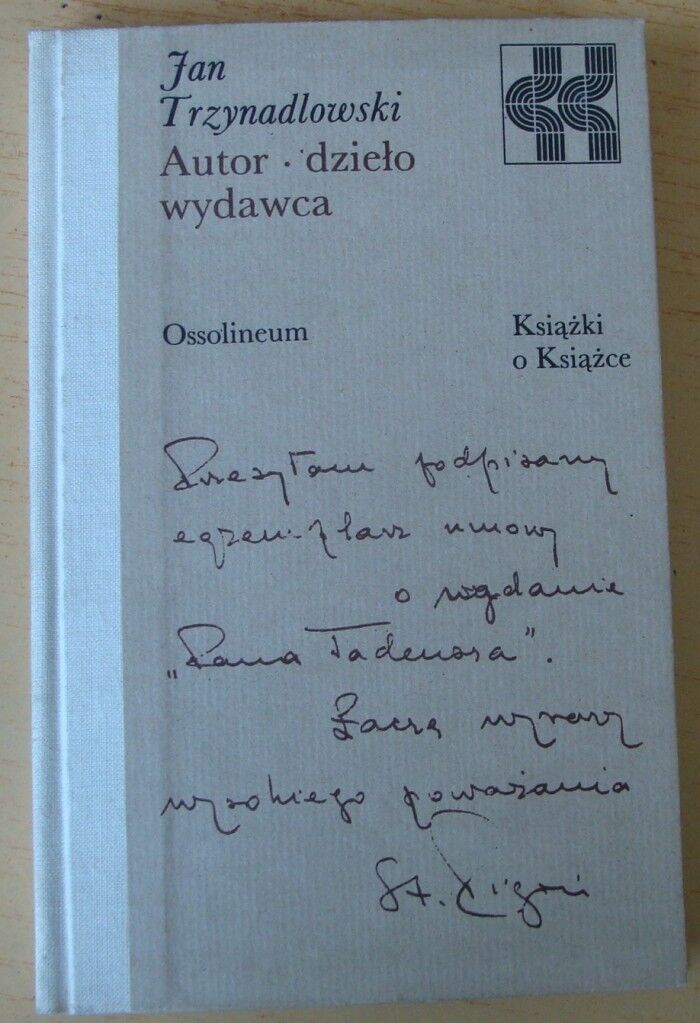 Jan
Trzynadlowski
Autor · dzieło
wydawca
Ossolineum
Książki
o Książce
Przesyłam podpisany
egzemplarz umowy
o wydanie
„Pana Tadeusza”.
Łączę wyrazy
wysokiego poważania
St. Pigoń